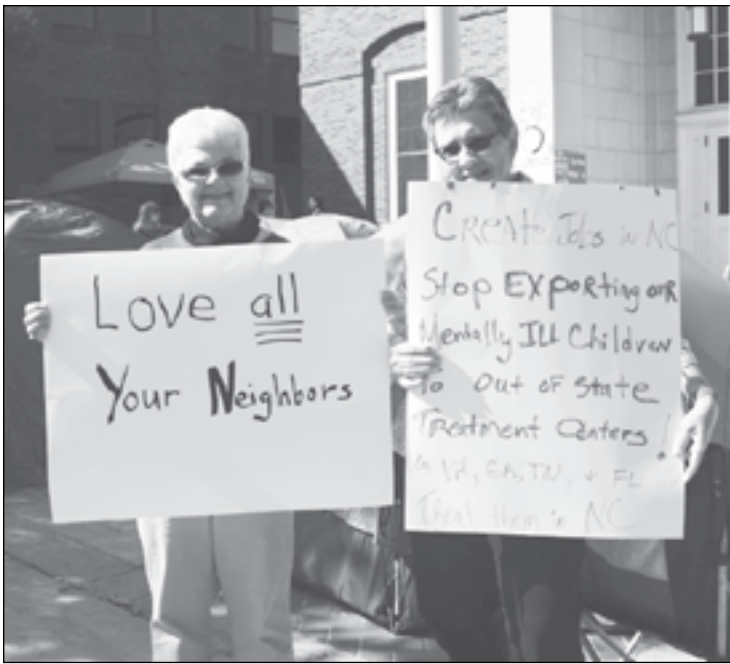 Love all
Your Neighbors
CREATE Jobs in NC
Stop EXPoRting ouR
Mentally ILL Children
To Out oF State
Treatment Centers!
VA, GA, TN, + FL
Treat them in NC